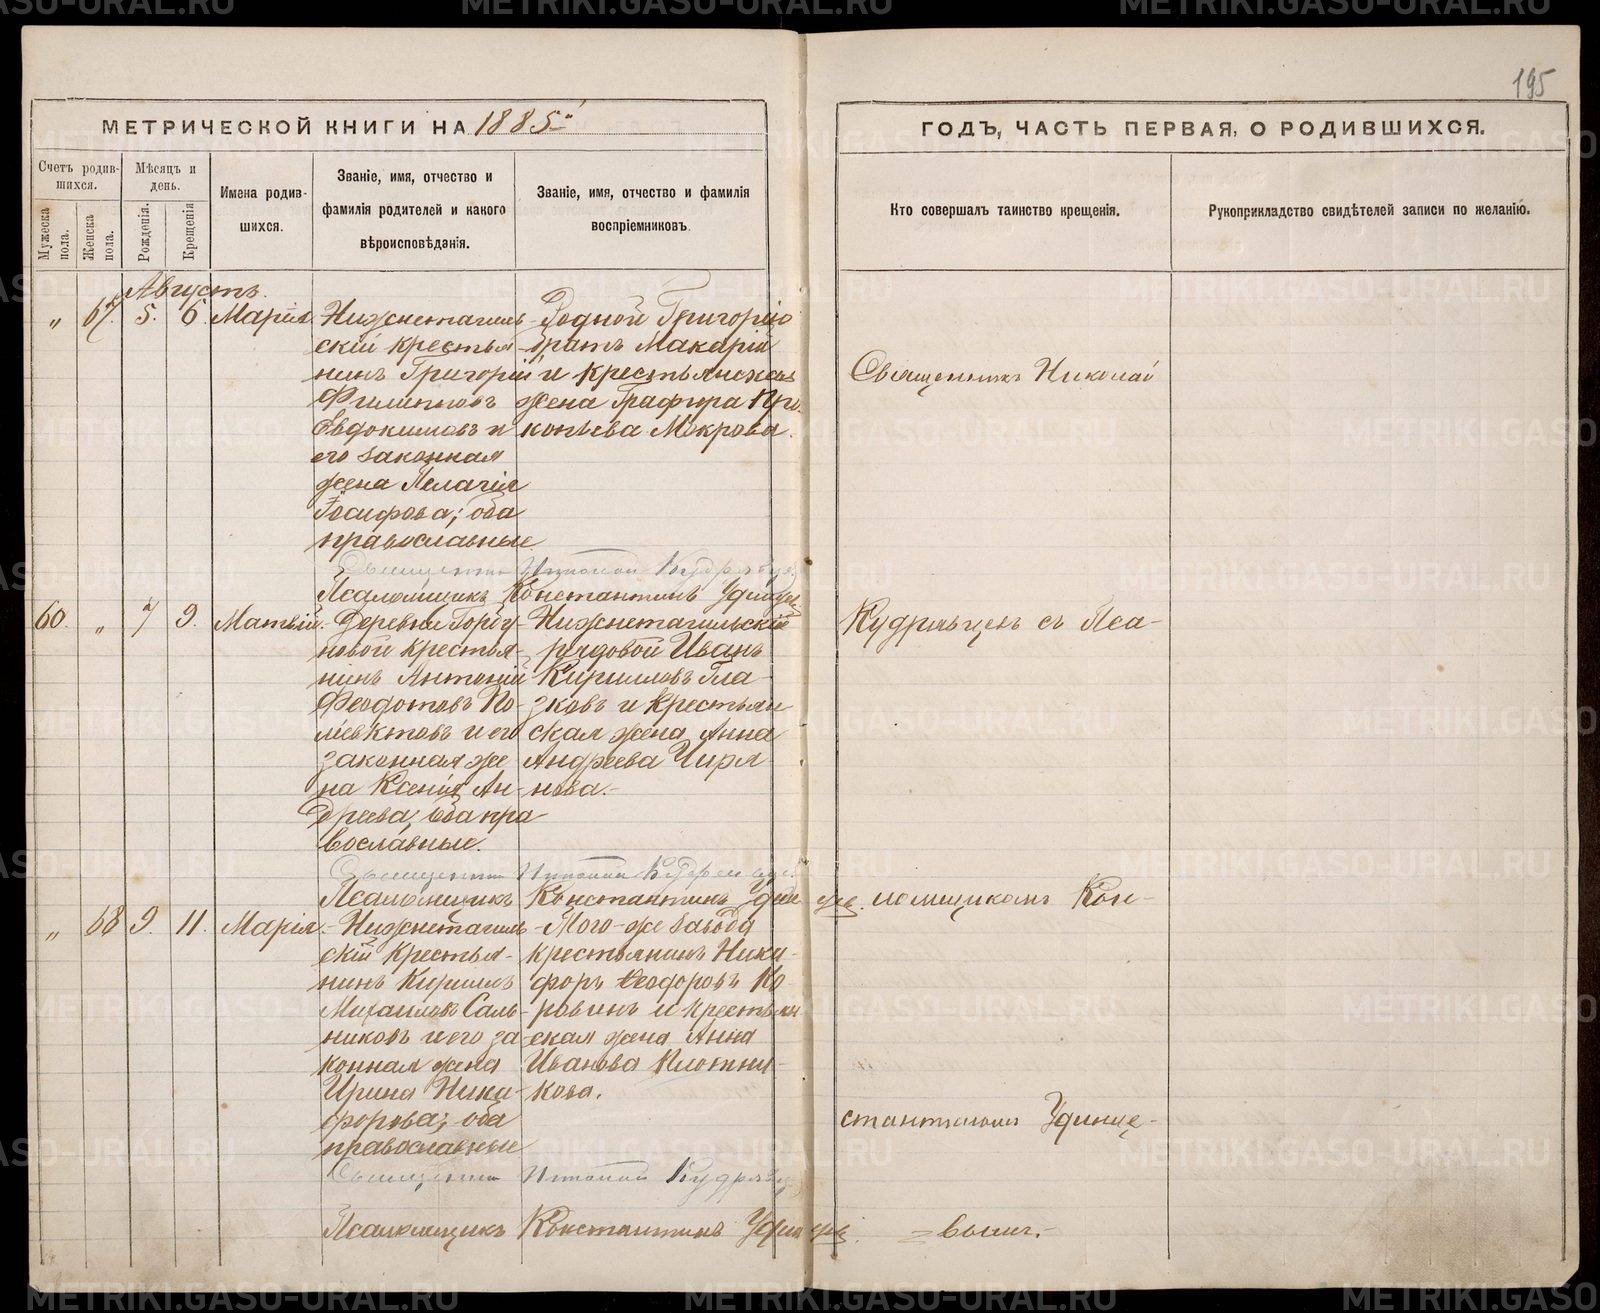 195
МЕТРИЧЕСКОЙ КНИГИ НА 1885й
ГОДЪ, ЧАСТЬ ПЕРВАЯ, О РОДИВШИХСЯ.
Счетъ родив-
шихся.
Мужеска пола.
Женска пола.
Мѣсяцъ и день.
Рожденія.
Крещенія
Имена родив-
шихся.
Званіе, имя, отчество и
фамилія родителей и какого
вѣроисповѣданія.
Званіе, имя, отчество и фамилія
воспріемниковъ.
Кто совершалъ таинство крещенія.
Рукоприкладство свидѣтелей записи по желанію.
Августъ.
„ 67. 5. 6. Марія
Нижнетагиль-
скій крестья-
нинъ Григорій
Филипповъ
Евдокимовъ и
его законная
жена Пелагія
Іосифова; оба
православные
Родной Григорію
братъ Макарій
и крестьянская
жена Глафира Про-
копьева Мокрова.
Священникъ Николай Кудрявцев
Псаломщикъ Константинъ Удинцев
60. „ 7 9. Матвій.
Деревни Горбу-
новой крестья-
нинъ Антоній
Феодотовъ По-
луектовъ и его
законная же-
на Ксенія Ан-
дреева; оба пра-
вославные.
Нижнетагильскій
рядовой Иванъ
Кирилловъ Гла-
зковъ и крестьян-
ская жена Анна
Андреева
нова.-
Священник Николай Кудрявцев
Псаломщикъ Константинъ Удинцев.
„ 68 9. 11. Марія.
Нижнетагиль-
скій крестья-
нинъ Кириллъ
Михаиловъ Саль-
никовъ и его за-
конная жена
Ирина Ника-
форова; оба
православные
Того-же завода
крестьянинъ Ники-
форъ Ѳеодоровъ Ко-
ровинъ и крестьян-
ская жена Анна
Иванова Плотни-
кова.
Священник Николай Кудрявцев
Псаломщикъ Константинъ Удинцев.
Священникъ Николай
Кудрявцевъ съ Пса-
ломщикомъ Кон-
стантиномъ Удинце-
вымъ.-
METRIKI.GASO-URAL.RU